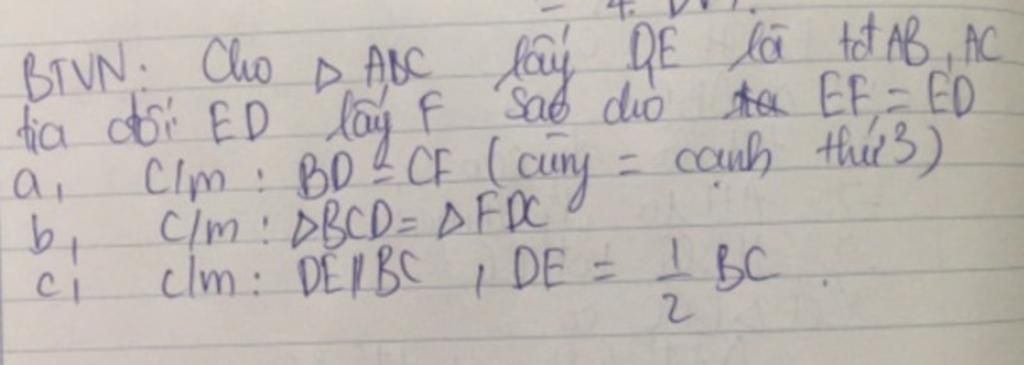 BTVN: Cho △ ABC lấy D,E là tđ AB, AC
tia đối ED lấy F sao cho EF = ED
a, C/m : BD = CF (cùng = cạnh thứ 3)
b, C/m : △BCD = △FDC
c, c/m : DE // BC , DE = 1/2 BC .